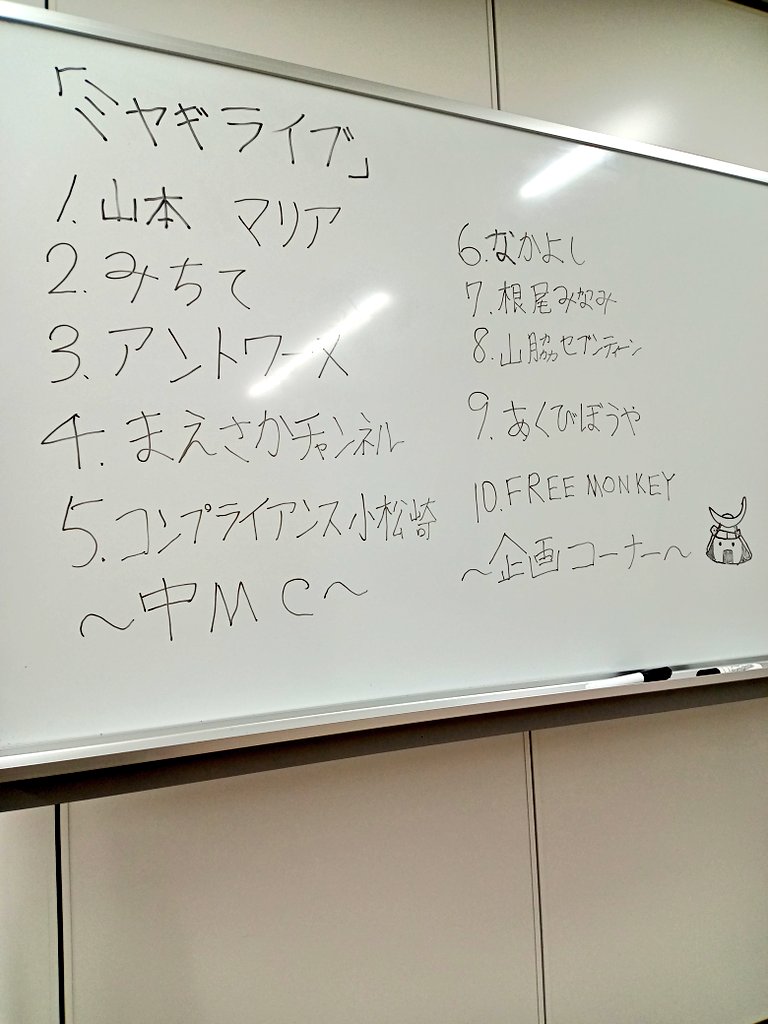 「ミヤギライブ」
1. 山本 マリア
2. みちて
3. アントワーメ
4. まえさかチャンネル
5. コンプライアンス小松崎
〜中MC〜
6. なかよし
7. 根尾みなみ
8. 山脇セブンティーン
9. あくびぼうや
10. FREE MONKEY
〜企画コーナー〜